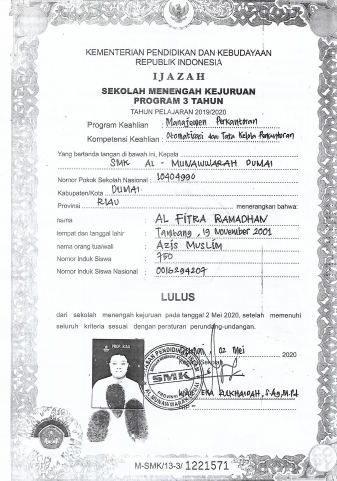 KEMENTERIAN PENDIDIKAN DAN KEBUDAYAAN
REPUBLIK INDONESIA
IJAZAH
SEKOLAH MENENGAH KEJURUAN
PROGRAM 3 TAHUN
TAHUN PELAJARAN 2019/2020
Program Keahlian : Manajemen Perkantoran
Kompetensi Keahlian : Otomatisasi dan Tata Kelola Perkantoran
Yang bertanda tangan di bawah ini, Kepala
SMK AL - MUNAWWARAH DUMAI
Nomor Pokok Sekolah Nasional : 10404990
Kabupaten/Kota DUMAI
Provinsi RIAU menerangkan bahwa:
nama : AL FITRA RAMADHAN
tempat dan tanggal lahir : Tambang, 19 November 2001
nama orang tua/wali : Azis Muslim
Nomor Induk Siswa : 750
Nomor Induk Siswa Nasional : 0016294207
LULUS
dari sekolah menengah kejuruan pada tanggal 2 Mei 2020, setelah memenuhi
seluruh kriteria sesuai dengan peraturan perundang-undangan.
02 Mei 2020
Kepala Sekolah
SMK
EKA S.Ag, M.Pd
M-SMK/13-3/ 1221571